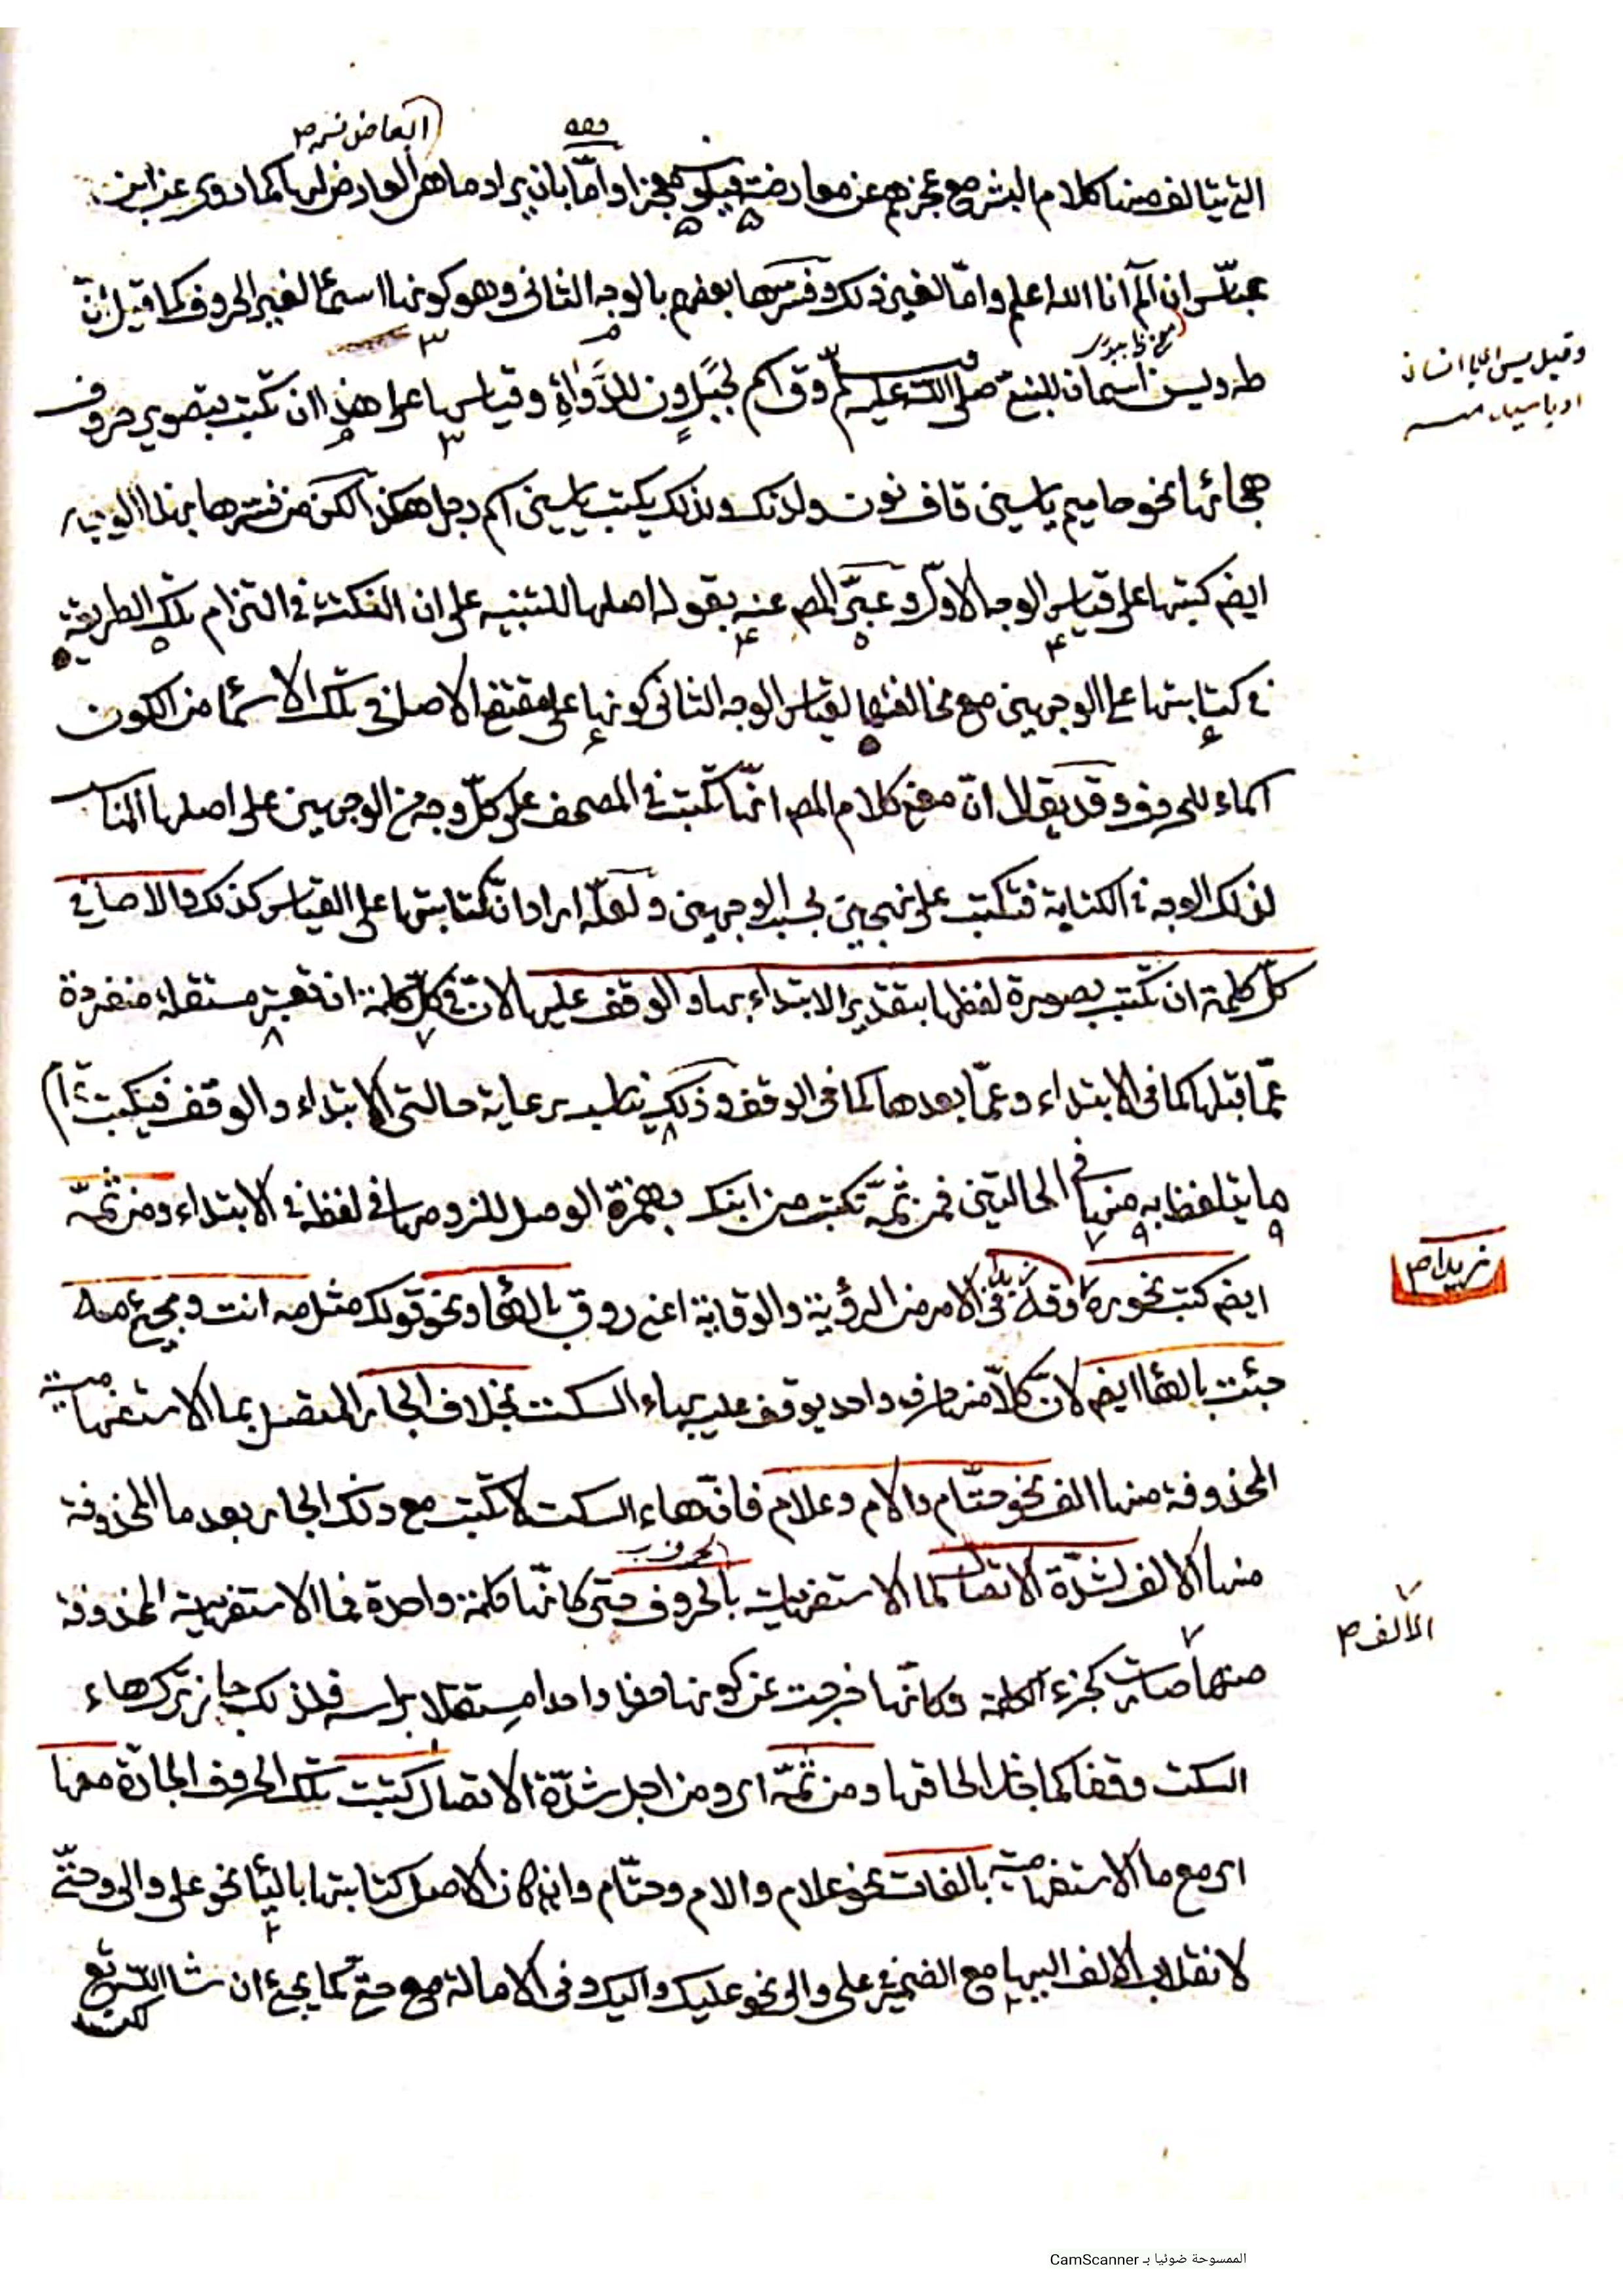 العارض نسه م
التى يتالف منها كلام البشر مع عجزهم عن معارضته فيكون معجزا واما بان يراد ما هى العارض لها كما روى عن ابن
عباس ان الم انا الله اعلم واما لغير ذلك وفسرها بعضهم بالوجه الثانى وهو كونها اسما لغير الحروف كما قيل ان
طه ويس اسمان للنبى صلى الله عليه وسلم وق اسم لجبل ون للدواة وقياسها على هذا ان تكتب بتصوير حروف
وقيل يس اى يا انسان
او يا سيد
هجائها نحو حاميم ياسين قاف نون ولذلك يكتب ياسين اسم رجل هكذا لكن من فسرها بهذا الوجه
ايضم كتبها على قياس الوجه الاول وعبر المص عنه بقوله اصلها للتنبيه على ان النكتة فى التزام تلك الطريقة
فى كتابتها على الوجهين مع مخالفتها لقياس الوجه الثانى كونها على مقتضى الاصل فى تلك الاسما من الكون
اسماء للحروف وقد يقال ان معنى كلام المص انها تكتب فى المصحف على كل وجه من الوجهين على اصلها المناسب
لذلك الوجه فى الكتابة فتكتب على نهجين بحسب الوجهين ولعله اراد ان كتابتها على القياس كذلك والاصل فى
كل كلمة ان تكتب بصورة لفظها بتقدير الابتداء بها والوقف عليها لان فى كل كلمة ان تعتبر مستقلة منفردة
عما قبلها كما فى الابتداء وعما بعدها كما فى الوقف وذلك يناسب رعاية حالتى الابتداء والوقف فيكتب
ما يتلفظ به منها فى الحالتين فمن ثمة تكتب من ابنك بهمزة الوصل للزومها فى لفظه فى الابتداء ومن ثمة
ايضم كتب نحو ره وقه فى الامر من الرؤية والوقاية اعنى ر وق بالها ونحو قولك مثل مه انت ومجئ مه
زيدا م
جئت بالها ايضم لان كلا منها حرف واحد يوقف عليه بهاء السكت بخلاف الجار المتصل بما الاستفهامية
المحذوفة منها الف نحو حتام والام وعلام فان هاء السكت لا تكتب مع ذلك الجار بعد ما المحذوفة
منها الالف لشدة الاتصال لما الاستفهامية بالحروف حتى كانها كلمة واحدة فما الاستفهامية المحذوفة
الالف م
منها صارت كجزء الكلمة وكانها خرجت عن كونها حرفا واحدا مستقلا براسه فلذلك جاز ترك هاء
السكت وقفا كما جاز الحاقها ومن ثمة اى ومن اجل شدة الاتصال كتبت تلك الحروف الجارة معها
اى مع ما الاستفهامية بالفات نحو علام والام وحتام وان كان الاصل كتابتها باليا نحو على والى وحتى
لانقلاب الالف اليها مع الضمير فى على والى نحو عليك واليك وفى الامالة مع حتى كما يجئ ان شا الله تع
كتبت
الممسوحة ضوئيا بـ CamScanner